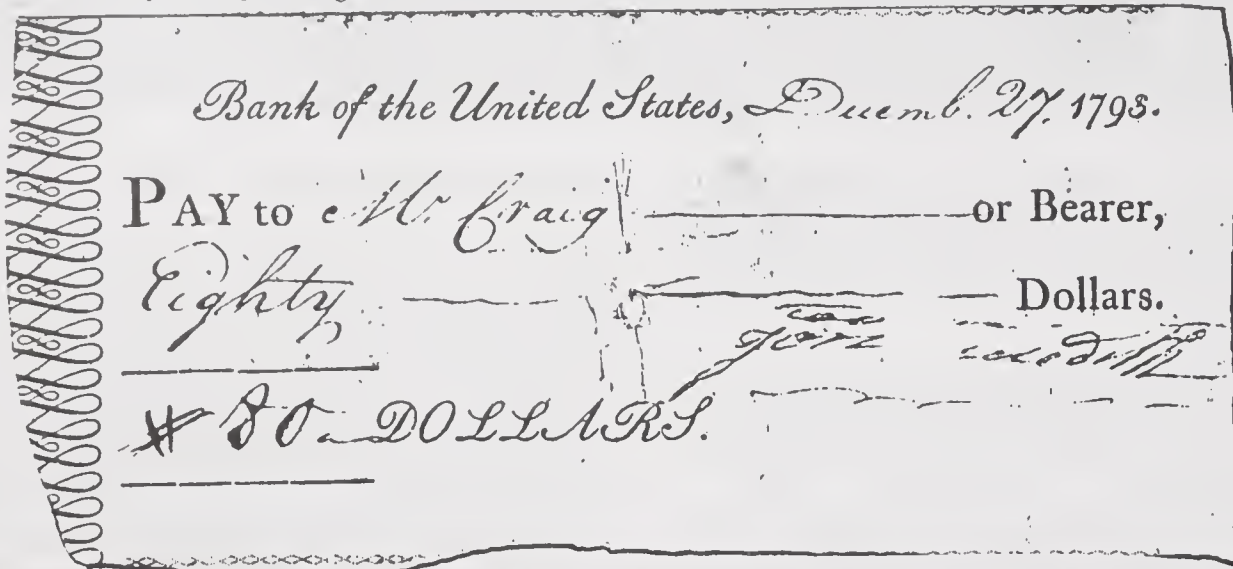 Bank of the United States, Decemb. 27. 1793.
PAY to Mr Craig or Bearer,
Eighty Dollars.
$ 80 DOLLARS.